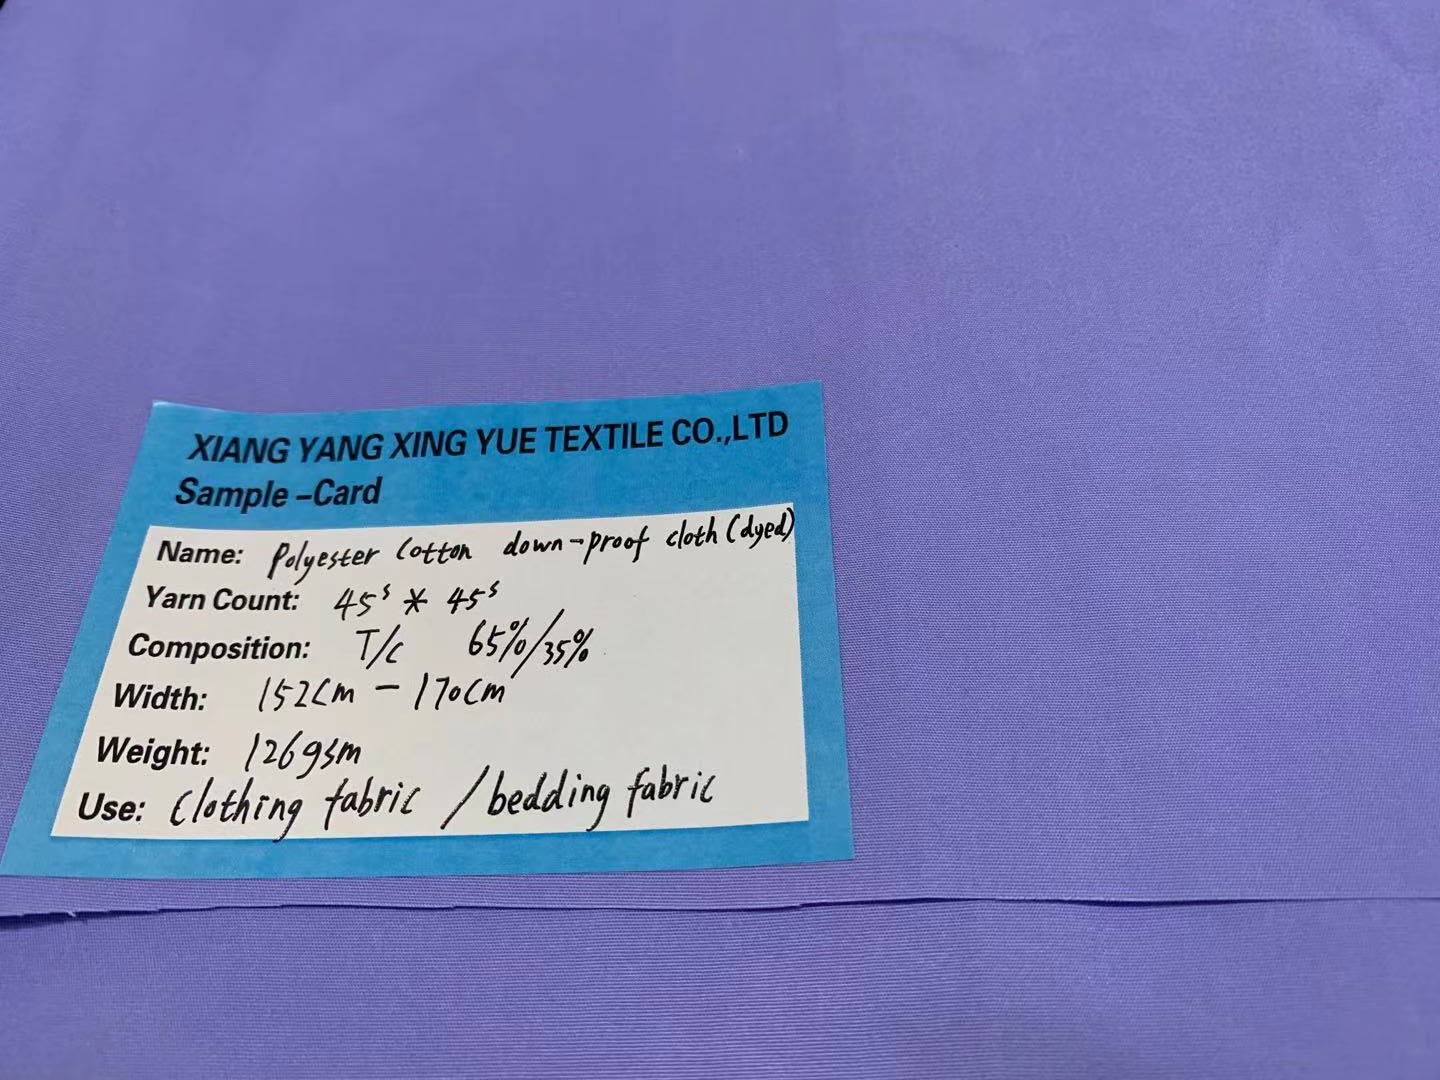 XIANG YANG XING YUE TEXTILE CO.,LTD
Sample-Card
Name: Polyester Cotton down-proof cloth (dyed)
Yarn Count: 45ˢ * 45ˢ
Composition: T/C 65%/35%
Width: 152cm - 170cm
Weight: 126gsm
Use: Clothing fabric / bedding fabric